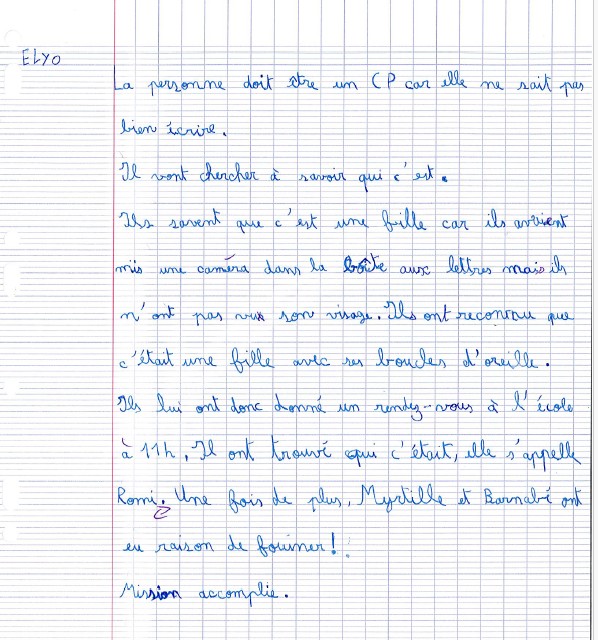 ELYO
La personne doit être un CP car elle ne sait pas
bien écrire.
Il vont chercher à savoir qui c'est.
Ils savent que c'est une fille car ils avaient
mis une caméra dans la boîte aux lettres mais ils
n'ont pas vu son visage. Ils ont reconnu que
c'était une fille avec ses boucles d'oreille.
Ils lui ont donc donné un rendez-vous à l'école
à 11h. Il ont trouvé qui c'était, elle s'appelle
Romi. Une fois de plus, Myrtille et Barnabé ont
eu raison de fouiner!
Mission accomplie.